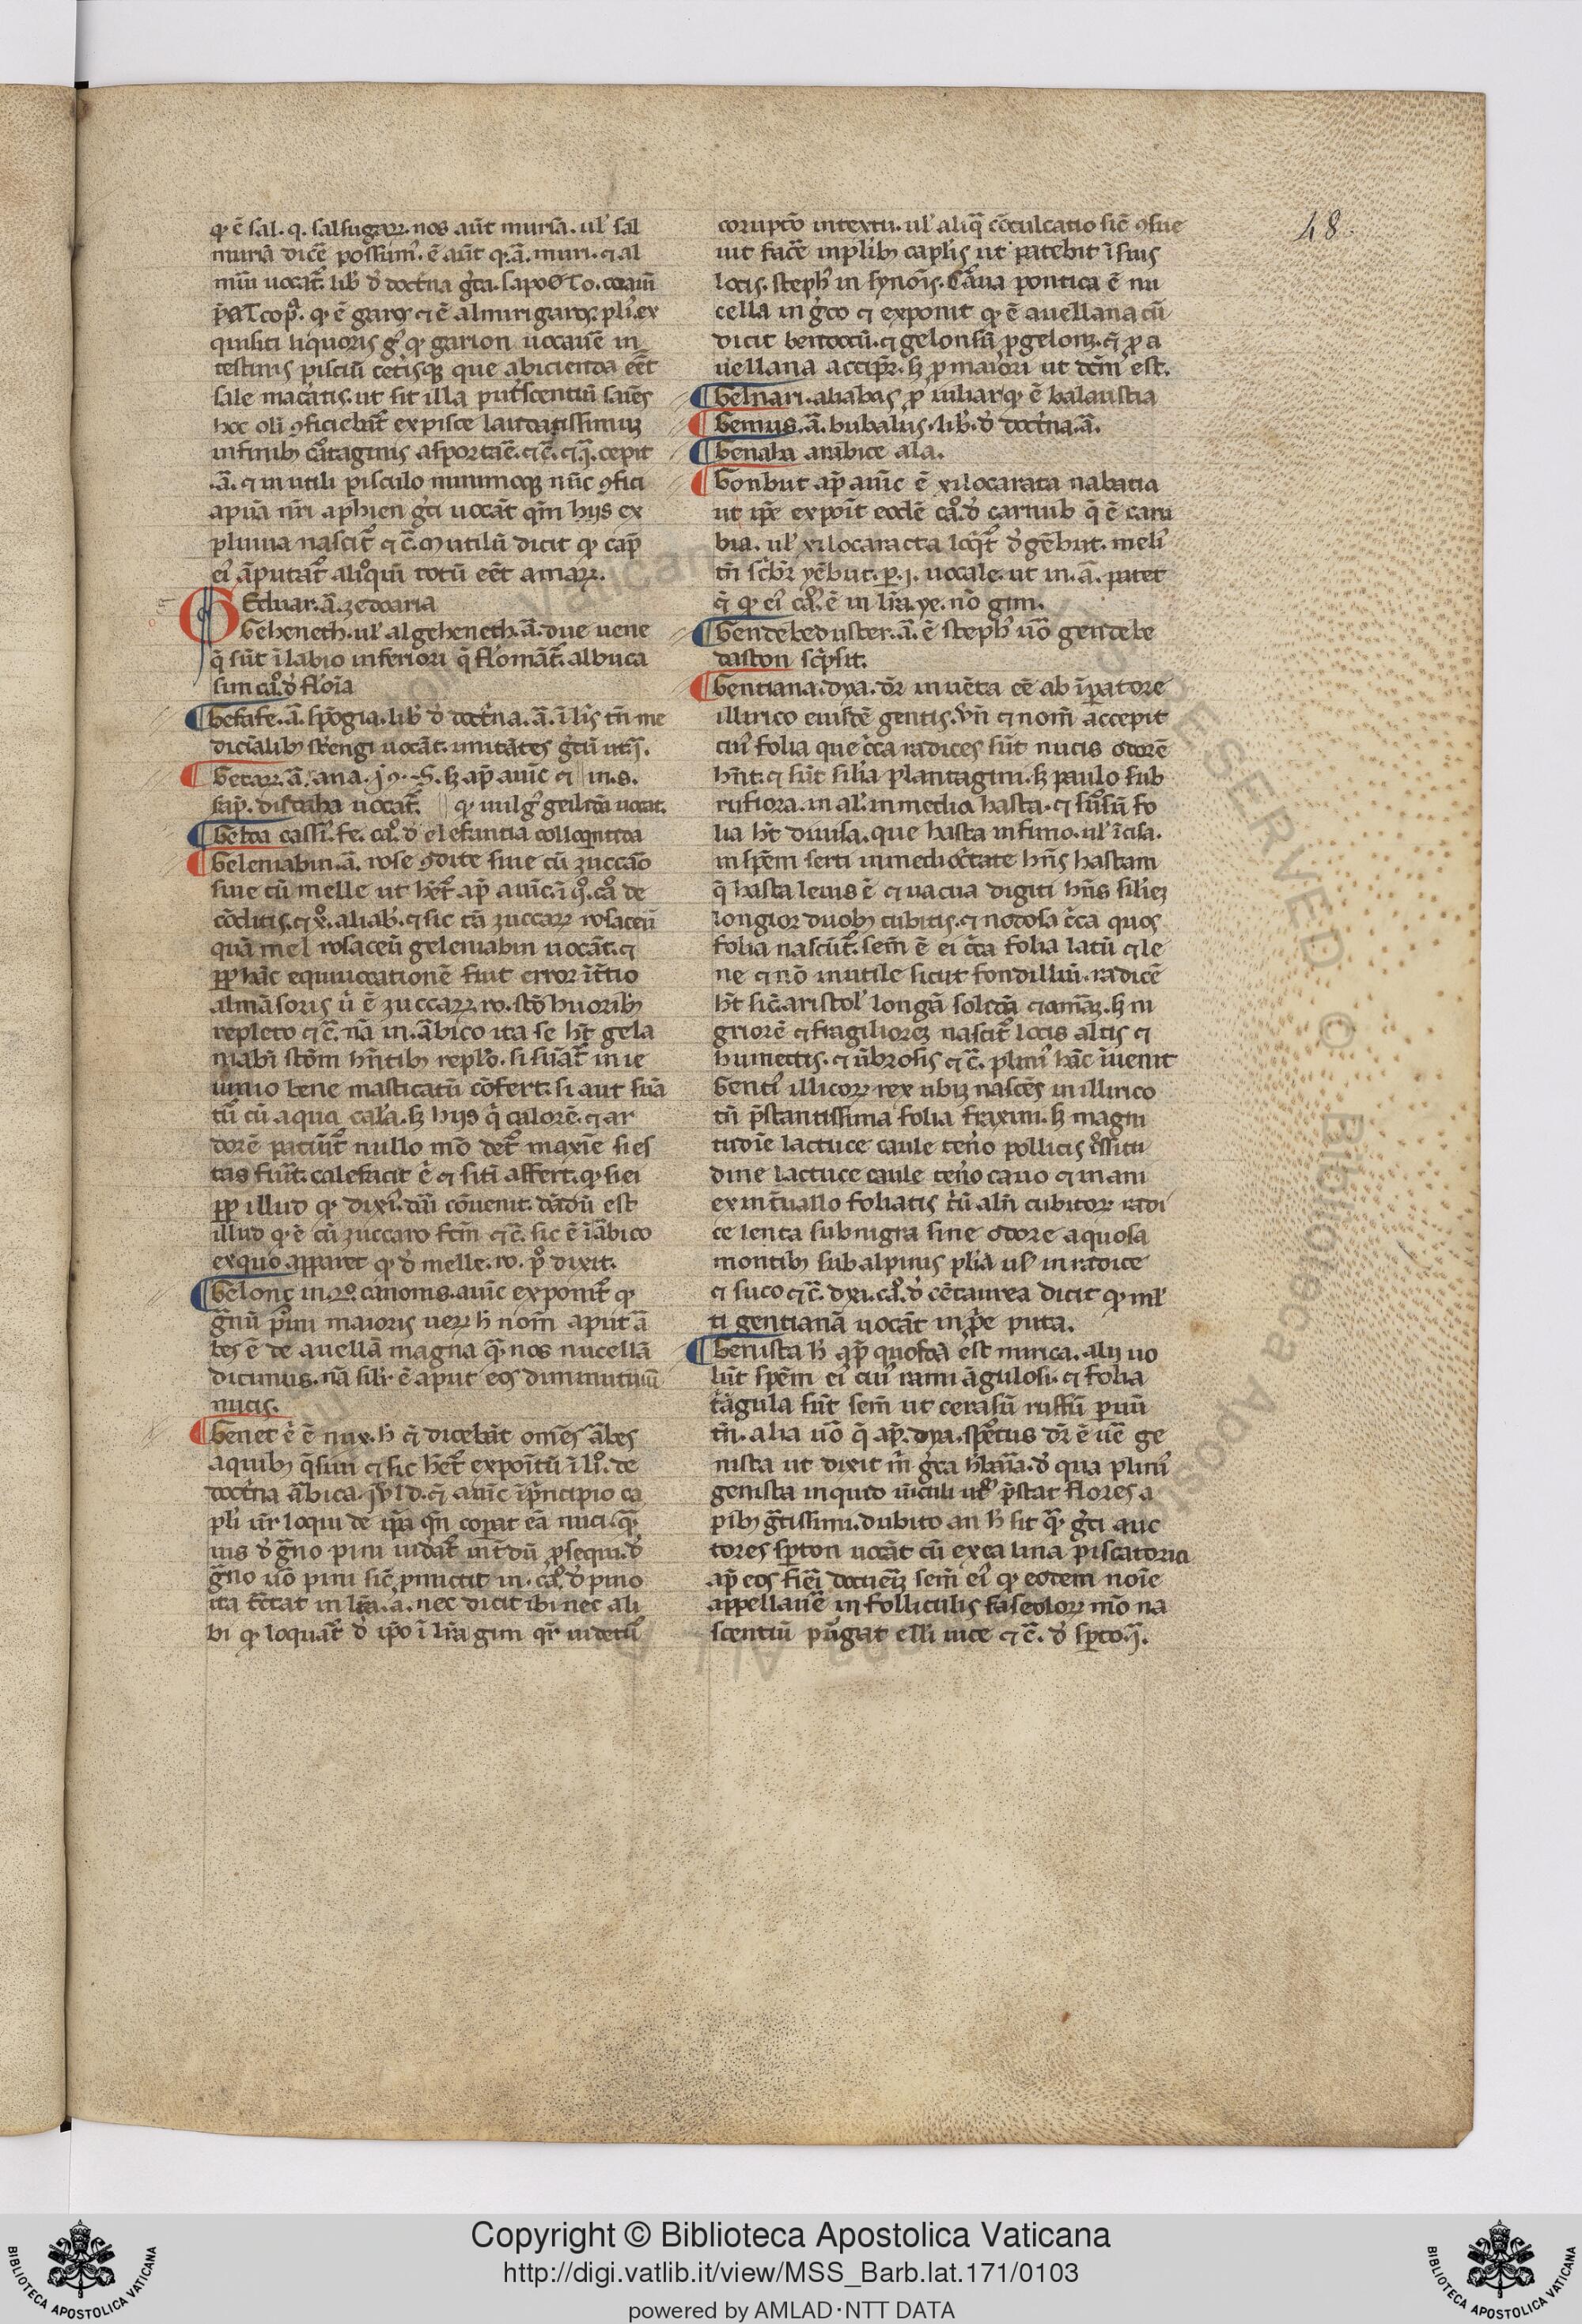 qͥ ē sal. q. salsugaꝝ. nos aūt muriā. ul' sal
muriā dicē possum'. ē aūt q. ā. muri. ⁊ al
quisiti liquoris g̾ qͥ garion uocauē in
testinis pisciū cetisqꝫ que abicienda eēt
sale mac̾atis. ut sit illa put̾scentiū sanies
hoc oli ꝯficiebāt̾ ex pisce laudatissimuꝫ
infinibꝫ cartaginis asportatē. ⁊ c̄. ⁊ q̄. cepit
.ā. ⁊ inutili pisculo minimoqꝫ nūc ꝯfici
apuā nr̄i aphien gͥci uocāt qm̄ hijs ex
pluuia nascit̾ ⁊ c̄. mutilū dicit qͥ cap̄
ei' āputat̾ alioqui totū eēt amaꝝ.
GEduar. ā. zedoaria
Geheneth. ul' algeheneth. ā. due uene
q̄ sūt ī labio inferiori q̄ flōmāt̾. albuca
sim ca°. d̾ flōia
Gefafe. ā. spōgia. lib' d̾ doct̾na. ā.
dicīalibꝫ
Getaꝝ. ā. ana.
uocat̾.
Gelda cassi' fe. ca°. d̾ elefantia colloquintida
Geleniabin. ā. rose ꝯdite siue cū zuccaō
siue cū melle ut hēt̾ ap̄ auic̄. ī q°. ca° de
cōditis. ⁊ x°. aliab'. ⁊ sic tā zuccaꝝ rosaceū
quā mel rosaceū geleniabin uocāt. ⁊
ꝓp hāc equiuocationē fuit error ī t̄tio
almāsoris u' ē zuccaꝝ. ro. stō huoribꝫ
repleto ⁊ c̄. nā in. ābico ita se ht̄ gela
nabi stōm hn̄tibꝫ repl̄o. si sūat̾ in ie
iunio bene masticatū cōfert. si aut sūa
tū cū aqua cal'a. sꝫ hijs q' calorē. ⁊ ar
dorē patiūt̾ nullo mō det̾ maxīe si es
tas fuit. calefacit ē ⁊ sitī affert. qͥ si ei
ꝓp illud qͥ dixi'. dāi cōuenit. dādū est
illud qͥ ē cū zuccaro fcm̄ ⁊ c̄. sic ē ī ābico
ex quo apparet qͥ d̾ melle. ro. p° dixit.
Gelonç in 2°. canonis. auic̄ exponit̾ qͥ
g̾nū pini maioris ueꝝ h̄ nom̄ aput ā
bes ē de auellā magna q̄. nos nucellā
dicimus. nā sil'r ē aput eos diminutiuū
nucis.
Genet ē ē nux. h̄ ⁊ dicebāt omēs ābes
a quibꝫ q̄siui ⁊ sic hēt̾ expoītū ī li°. de
doct̾na ābica. ⁊ auic̄ ī pͥncipio ca
pl̄i ur̄ loqui de ip̄a qn̄ coparat eā nuci. q̄
uis d̾ g̾no pini uideat̾ int̄dū ꝓsequi. d̾
g̾no uō pini sic̄ ꝓmictit in. ca°. d̾ pino
ita t̄ctat in lr̄a. a. nec dicit ibi nec ali
bi qͥ loquat̾ d̾ ip̄o ī lr̄a gim qr̄ uidetur
corupt̄o in textu. ul' aliq̄ cōculcatio sic̄ ꝯsue
uit facē in pl'ibꝫ capl̄is ut patebit ī suis
locis. steph' in synoīs. Cāua pontica ē nu
cella in gͥco ⁊ exponit qͥ ē auellana cū
dicit bendocū. ⁊ gelonsū ꝓ gelonꝫ. ⁊ ꝓ a
uellana accipr̄. sꝫ ꝓ maiori ut dcm̄ est.
Gelnari. aliabas ꝓ iulnar qͥ ē balaustia
Gemus. ā. bubalus. lib'. d̾ doct̾na. ā.
Genaha arabice ala.
Gonbut ap̄ auic̄ ē xilocarata nabatia
ut ip̄e expoīt eodē ca°. d̾ carnub q̄ ē caru
bia. ul' xilocaracta lcq̄t̾ d̾ gēbut. meli'
tn̄ sc̾bir̄ yēbut. p. j. uocale. ut in. ā. patet
⁊ qͥ ei' ca°. ē in lr̄a. ye. nō gim.
Gendēbeduster. ā. ē steph' uō gendebe
daston sc̾psit.
Gentiana. dya. dr̄ inuēta eē ab īpatore
illirico eiusdē gentis. vn̄ ⁊ nom̄ accepit
cui' folia que c̾ca radices sūt nucis odorē
hn̄t. ⁊ sūt sil'ia plantagini. sꝫ paulo sub
rufiora. in al'. in media hasta. ⁊ sūsū fo
lia ht̄ diuisa. que hasta infimo. ul' īcisa.
in spēm serti in mediocͥtate hn̄s hastam
q̄ hasta leuis ē ⁊ uacua digiti hn̄s sil'ieꝫ
longior duobꝫ cubitis. ⁊ nodosa c̾ca quos
folia nascūt̾. sem̄ ē ei c̾ca folia latū ⁊ le
ne ⁊ nō inutile sicut fondilliū. radicē
ht̄ sic̄. aristol' longā solidā ⁊ amāꝝ. sꝫ ni
griorē ⁊ fragilioreꝫ nascit̾ locis altis ⁊
humectis. ⁊ ūbrosis ⁊ c̄. plini' hāc īuenit
Genti' illicoꝝ rex ubiꝫ nascēs in illirico
tn̄ p̄stantissima folia fraxini. sꝫ magni
tudīe lactuce caule tenēo pollicis gͦssitu
dine lactuce caule tenēo cauo ⁊ inani
ex int̾uallo foliatis t̄ū aln̄ cubitoꝝ radi
ce lenta subnigra sine odore aquosa
montibꝫ subalpinis pl'ia us' in radice
⁊ suco ⁊ c̄. dya. ca°. d̾ cētaurea dicit qͥ ml'
ti gentianā uocāt in p̄e puta.
Genista h̄ ap̄ quosdā est mirica. alij uo
lūt spēm ei' cui' rami āgulosi. ⁊ folia
t̾āgula sūt sem̄ ut cerasū ruffū puū
tn̄. alia uō q̄ ap̄. dya. spētus dr̄ ē ūe ge
nista ut dixit m̄ gͥca h̄baīa. d̾ qua plini'
genista in quid uīculi us' p̄stat flores a
pibꝫ g̾tissimi. dubito an h̄ sit q̄ gͥci auc
tores sp̄ton uocāt cū ex ea lina piscatoria
ap̄ eos fieri docueīꝫ sem̄ ei' qͥ eodem noīe
appellauē in folliculis faseoloꝝ mō na
scentiū pūgat elli uice ⁊ c̄. d̾ sp̄to. q̄.
48
Copyright © Biblioteca Apostolica Vaticana
http://digi.vatlib.it/view/MSS_Barb.lat.171/0103
powered by AMLAD·NTT DATA
BIBLIOTECA APOSTOLICA VATICANA
BIBLIOTECA APOSTOLICA VATICANA